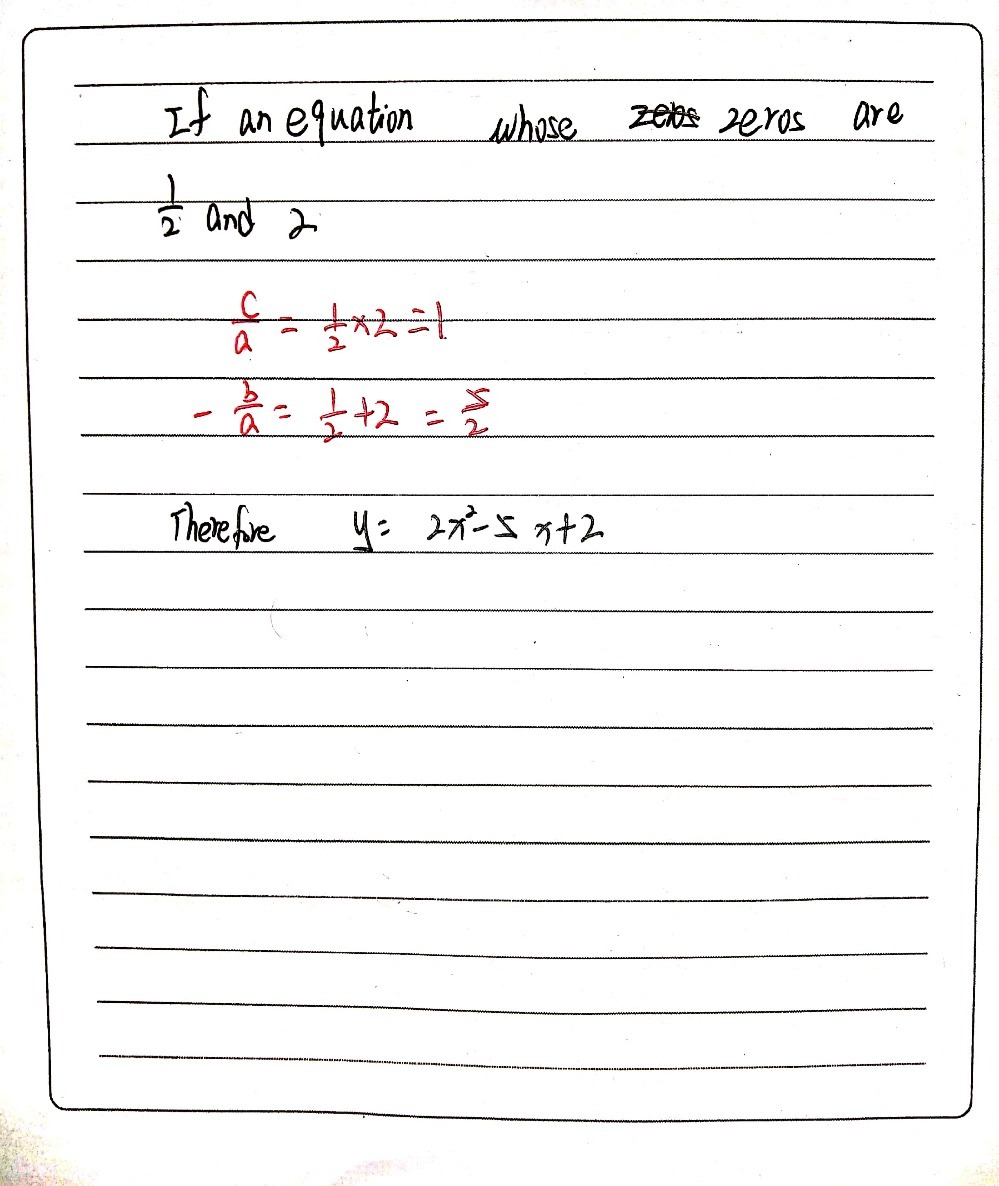 If an equation whose zeros zeros are
1/2 and 2
c/a = 1/2 × 2 = 1
- b/a = 1/2 + 2 = 5/2
Therefore y = 2x² - 5x + 2